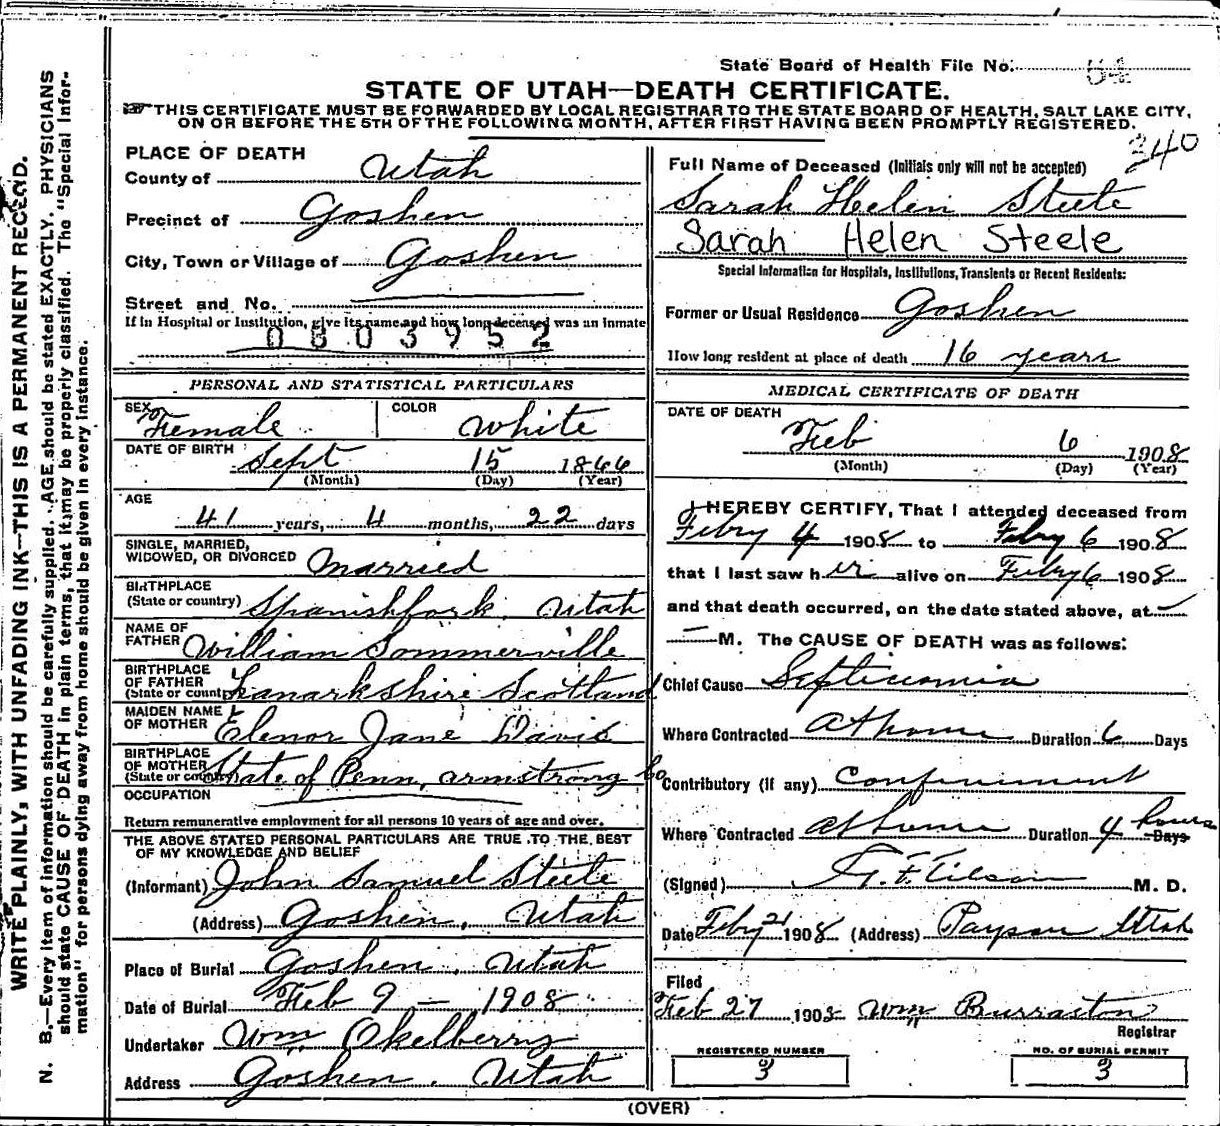 State Board of Health File No. 64
STATE OF UTAH—DEATH CERTIFICATE.
THIS CERTIFICATE MUST BE FORWARDED BY LOCAL REGISTRAR TO THE STATE BOARD OF HEALTH, SALT LAKE CITY,
ON OR BEFORE THE 5TH OF THE FOLLOWING MONTH, AFTER FIRST HAVING BEEN PROMPTLY REGISTERED.
340
WRITE PLAINLY, WITH UNFADING INK—THIS IS A PERMANENT RECORD.
N. B.—Every item of information should be carefully supplied. AGE should be stated EXACTLY. PHYSICIANS
should state CAUSE OF DEATH in plain terms, that it may be properly classified. The "Special Infor-
mation" for persons dying away from home should be given in every instance.
PLACE OF DEATH
County of Utah
Precinct of Goshen
City, Town or Village of Goshen
Street and No.
If in Hospital or Institution, give its name and how long deceased was an inmate
0803952
PERSONAL AND STATISTICAL PARTICULARS
SEX Female COLOR White
DATE OF BIRTH Sept 15 1866
(Month) (Day) (Year)
AGE
41 years, 4 months, 22 days
SINGLE, MARRIED,
WIDOWED, OR DIVORCED Married
BIRTHPLACE
(State or country) Spanishfork, Utah
NAME OF
FATHER William Sommerville
BIRTHPLACE
OF FATHER
(State or country) Lanarkshire Scotland
MAIDEN NAME
OF MOTHER Elenor Jane Davis
BIRTHPLACE
OF MOTHER
(State or country) State of Penn, armstrong Co
OCCUPATION
Return remunerative employment for all persons 10 years of age and over.
THE ABOVE STATED PERSONAL PARTICULARS ARE TRUE TO THE BEST
OF MY KNOWLEDGE AND BELIEF
(Informant) John Samuel Steele
(Address) Goshen, Utah
Place of Burial Goshen, Utah
Date of Burial Feb 9 — 1908
Undertaker Wm Okelberry
Address Goshen, Utah
Full Name of Deceased (Initials only will not be accepted)
Sarah Helen Steele
Sarah Helen Steele
Special Information for Hospitals, Institutions, Transients or Recent Residents:
Former or Usual Residence Goshen
How long resident at place of death 16 years
MEDICAL CERTIFICATE OF DEATH
DATE OF DEATH
Feb 6 1908
(Month) (Day) (Year)
I HEREBY CERTIFY, That I attended deceased from
Febry 4 1908 to Febry 6 1908
that I last saw her alive on Febry 6 1908
and that death occurred, on the date stated above, at —
— M. The CAUSE OF DEATH was as follows:
Chief Cause Septicemia
Where Contracted at home Duration 6 Days
Contributory (if any) Confinement
Where Contracted at home Duration 4 hours Days
(Signed) F. Tilson M. D.
Date Febry 21 1908 (Address) Payson Utah
Filed
Feb 27 1908 Wm Burraston
Registrar
REGISTERED NUMBER
3
NO. OF BURIAL PERMIT
3
(OVER)